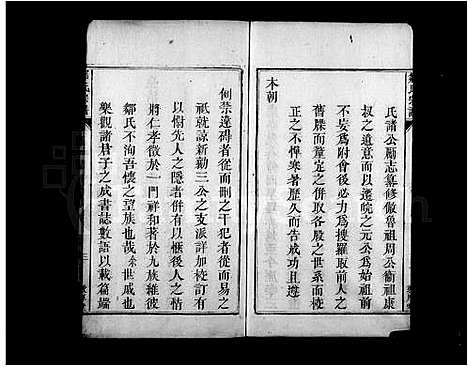 氏諸公勵志纂修倣魯祖周公衞祖康
叔之遺意而以遷皖之元公爲始祖前
不妄爲附會後必力爲搜羅取前人之
舊牒而釐定之併取各股之世系而校
正之不憚寒暑歷久而告成功且遵
本朝
例禁違碍者從而刪之干犯者從而易之
祇就諒新勤三公之支派詳加校訂有
以慰先人之隱者併有以愜後人之情
將仁孝徵於一門祥和著於九族維彼
鄒氏不洵吾懷之望族也哉余世戚也
樂觀諸君子之成書誌數語以載篇端